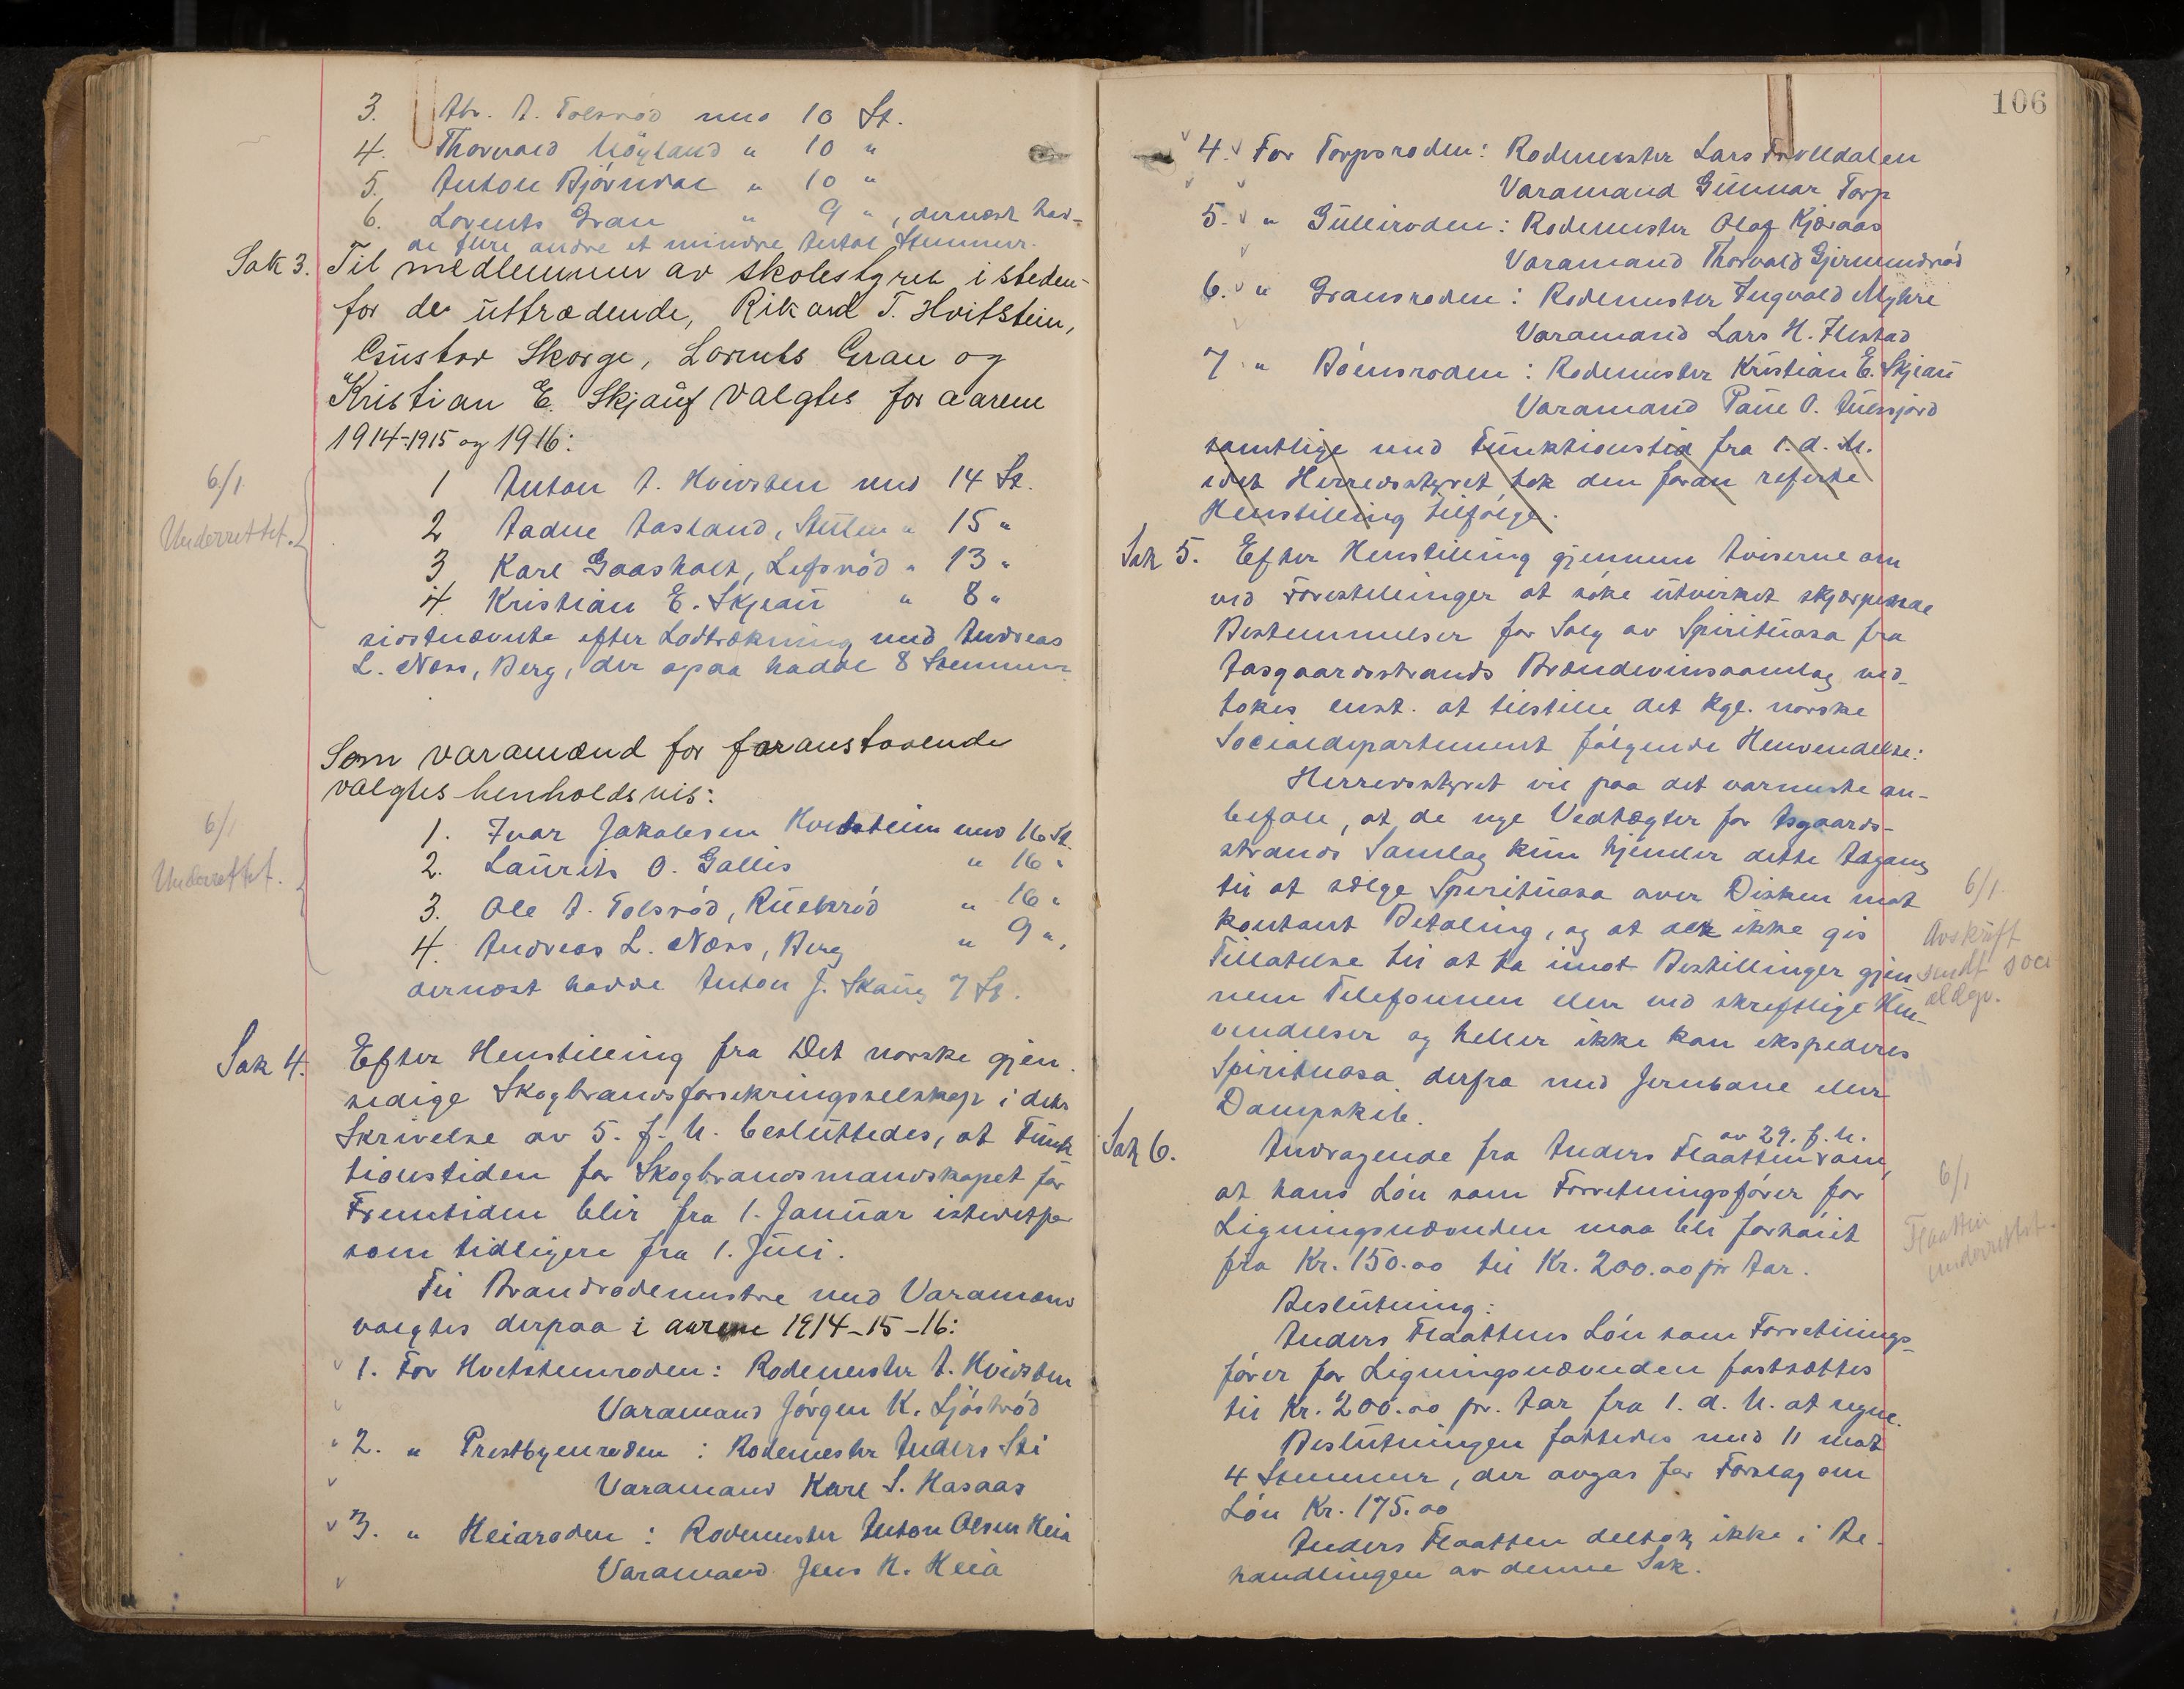 3. Abr. A. Tolsrød med 10 St.
4. Thorvald Høyland " 10 "
5. Anton Bjørndal " 10 "
6. Lorents Gran " 9 ", dernæst had-
de flere andre et mindre Antal Stemmer.
Sak 3. Til medlemmer av skolestyret i steden-
for de uttrædende, Rikard T. Hvitstein,
Gustav Skorge, Lorents Gran og
Kristian E. Skjauf valgtes for aarene
1914-1915 og 1916:
6/1 Underrettet.
1 Anton A. Hvidsten med 14 St.
2 Aadne Aasland, Stulen " 15 "
3 Karl Gaasholt, Lefsrød " 13 "
4. Kristian E. Skjeau " 8 "
sidstnævnte efter Lodtrækning med Andreas
L. Næss, Berg, der ogsaa hadde 8 Stemmer
Som varamænd for foranstaaende
valgtes henholdsvis:
6/1 Underrettet.
1. Ivar Jakobsen Hvitstein med 16 St.
2. Laurits O. Gallis " 16 "
3. Ole A. Tolsrød, Ruelsrød " 16 "
4. Andreas L. Næss, Berg " 9 ",
dernæst hadde Anton J. Skaug 7 St.
Sak 4. Efter Henstilling fra Det norske gjen
sidige Skogbrandsforsikringsselskap i dets
Skrivelse av 5. f. M. besluttedes, at Funk
tionstiden for Skogbrandsmandskapet for
Fremtiden blir fra 1. Januar istedetfor
som tidligere fra 1. Juli.
Til Brandrodemestre med Varamænd
valgtes derpaa i aarene 1914-15-16:
1. For Hvitstenroden: Rodemester A. Hvidsten
Varamand Jørgen K. Sjøstrød
2. " Prestbyenroden: Rodemester Anders Sti
Varamand Karl S. Hasaas
3. " Heiaroden: Rodemester Anton Olsen Heia
Varamand Jens H. Heia
106
4. For Torpsroden: Rodemester Lars Trolldalen
Varamand Gunnar Torp
5. " Gulliroden: Rodemester Olaf Kjæraas
Varamand Thorvald Gjermundrød
6. " Gransroden: Rodemester Ingvald Myhre
Varamand Lars H. Ilestad
7 " Bøensroden: Rodemester Kristian E. Skjeau
Varamand Paul O. Aulesjord
samtlige med Funktionstid fra 1. d. M.
idet Herredsstyret tok den foran referte
Henstilling tilfølge.
Sak 5. Efter Henstilling gjennem Aviserne om
ved Forestillinger at søke utvirket skjærpende
Bestemmelser for Salg av Spirituosa fra
Aasgaardsstrands Brændevinssamlag ved-
tokes enst. at tilstille det kgl. norske
Socialdepartement følgende Henvendelse:
Herredsstyret vil paa det varmeste an-
befale, at de nye Vedtægter for Aasgaards-
strands Samlag kun hjemler dette Adgang
til at sælge Spirituosa over Disken mot
kontant Betaling, og at det ikke gis
Tillatelse til at ta imot Bestillinger gjen
nem Telefonnen eller ved skreftlige Hen-
vendelser og heller ikke kan ekspederes
Spirituosa derfra med Jernbane eller
Dampskib.
6/1.
Avskrift
sendt soci
aldep.
Sak 6. Andragende fra Anders Flaatten av 29. f. M. om,
at hans Løn som Forretningsfører for
Ligningsnævnden maa bli forhøiet
fra Kr. 150.00 til Kr. 200.00 pr Aar.
6/1
Flaatten
underrettet.
Beslutning:
Anders Flaattens Løn som Forretnings-
fører for Ligningsnævnden fastsættes
til Kr. 200.00 pr. Aar fra 1. d. M. at regne.
Beslutningen fattedes med 11 mot
4 Stemmer, der avgas for Forslag om
Løn Kr. 175.00
Anders Flaatten deltok ikke i Be-
handlingen av denne Sak.